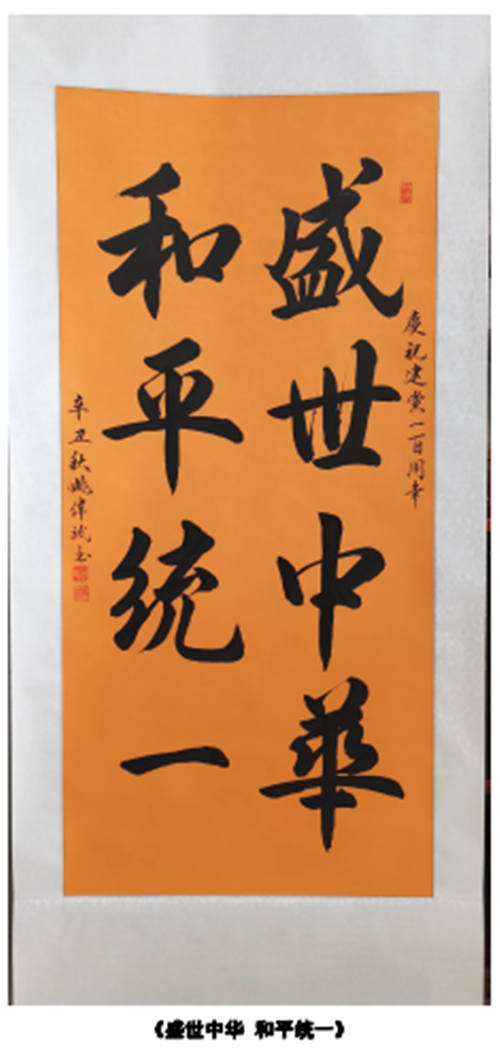 慶祝建黨一百周年
盛世中華
和平統一
辛丑秋姚偉誠书
《盛世中华 和平统一》